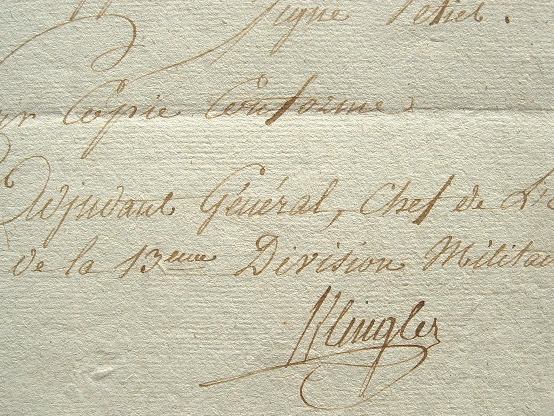 Signé Petiet.
Copie Conforme
Adjudant Général, Chef de
de la 13eme Division Militai
Klingler